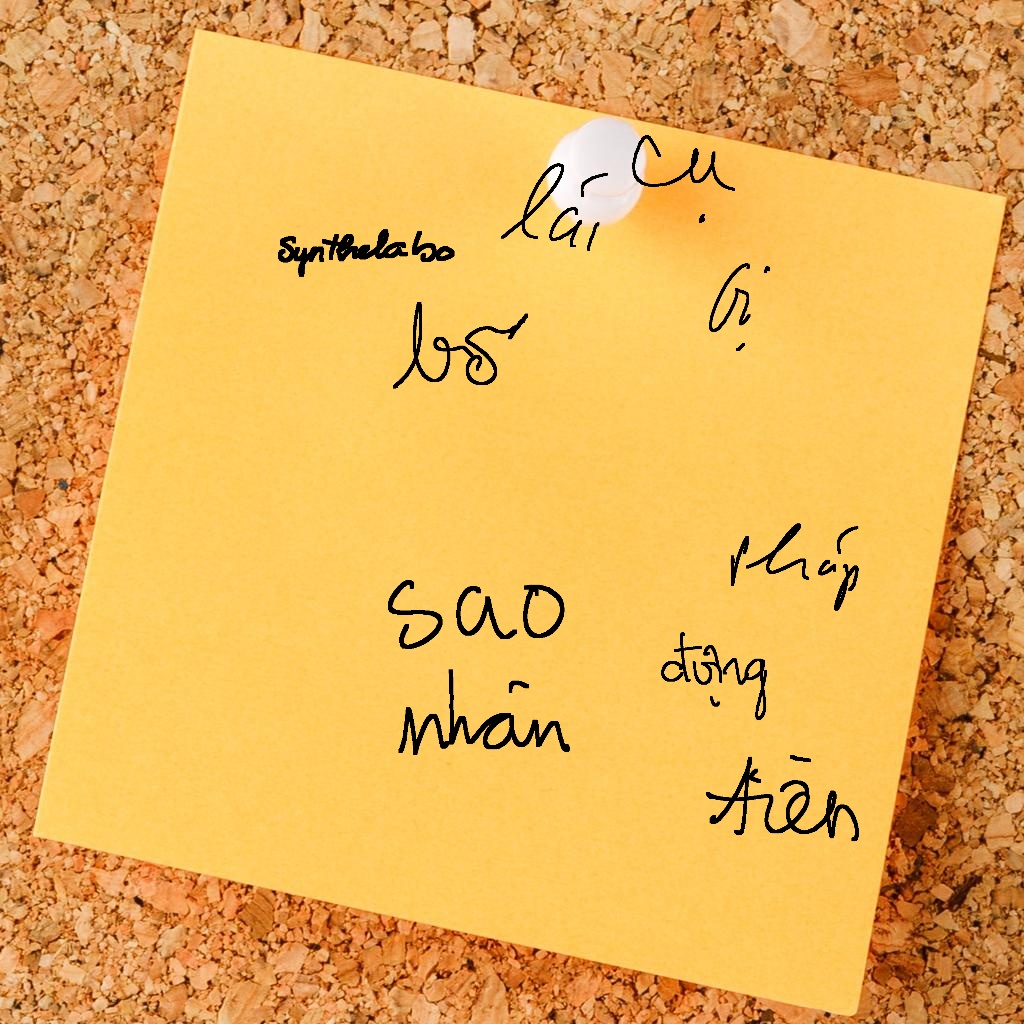 cụ
lái
Synthelabo
bị
bố
pháp
sao
đựng
nhãn
tiền